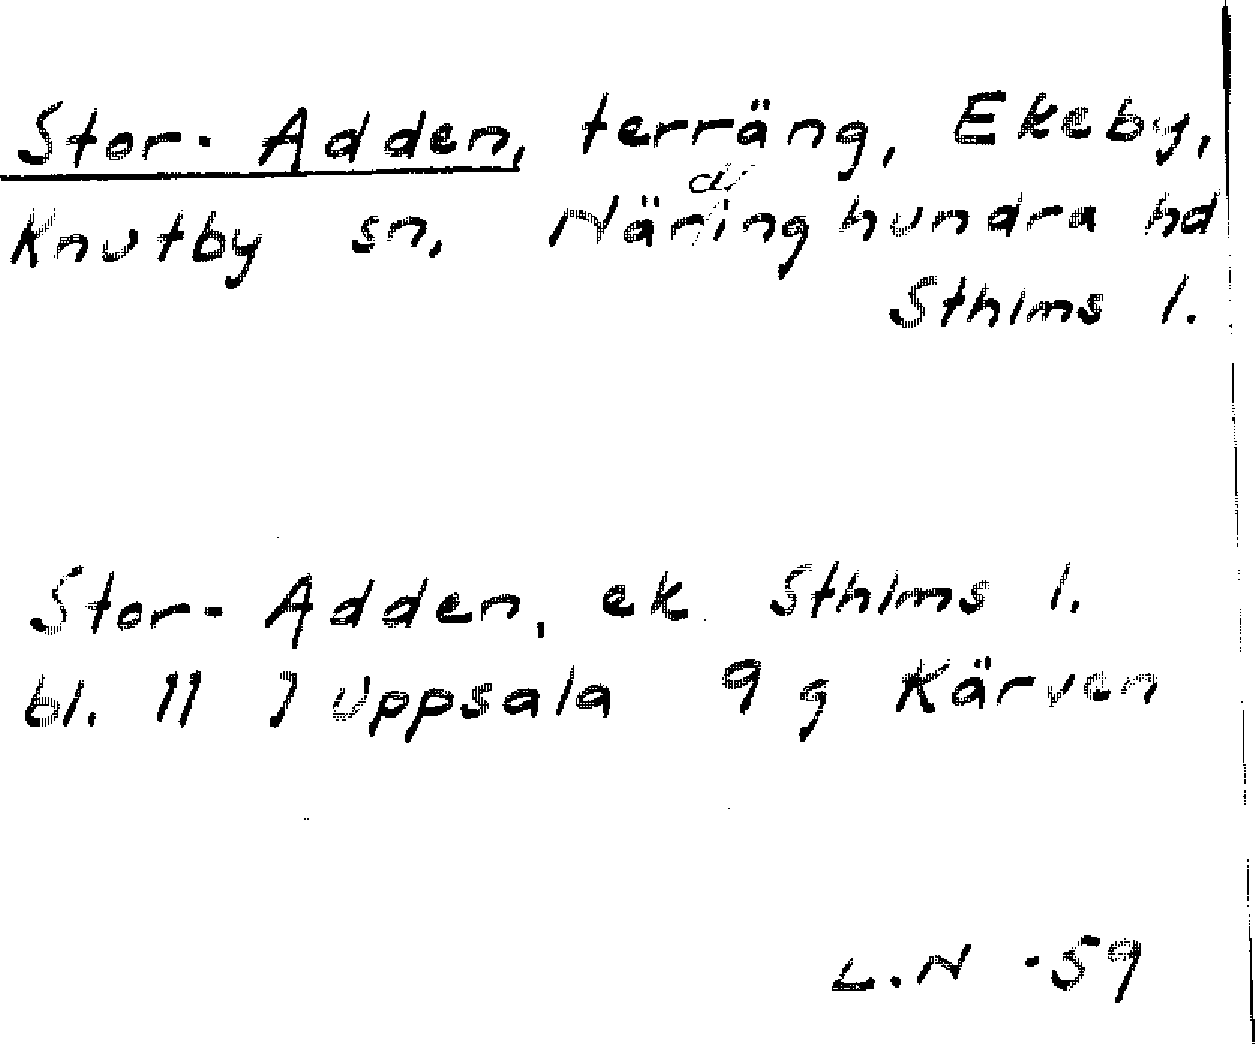 Stor-Adden, terräng, Ekeby,
Knutby sn. Närdinghundra hd
Sthlms l.
Stor-Adden, ek Sthlms l.
bl. 11 J Uppsala 9 g Kärven
L.N -59